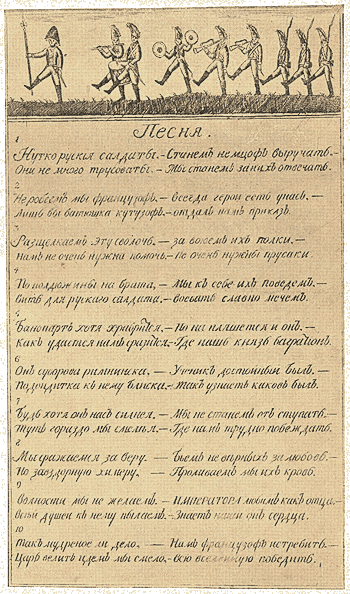 Песня.
1
Нутко руския салдаты. – Станемъ немцофъ выручать. –
Они не много трусоваты – Мы станемъ за нихъ отвечать.
2
Не робеемъ мы французофъ – всегда герои есть у насъ. –
Лишъ бы батюшка кутузофъ – отдалъ намъ приказъ.
3
Разщелкаемъ эту сволочь. – за воземъ ихъ полки. –
Намъ не очень нужна помочь. – Не очень нужны прусаки.
4
По полдюжины на брата, – Мы к себе ихъ поведемъ. –
Вить для рускаго салдата. – славно мечемъ. –
5
Банопартъ хотя – Но на и онъ. –
Какъ удастся намъ – Где нашъ князь багратионъ.
6
Онъ суворова рымнинска. – Ученикъ достойный былъ. –
Подойди тка к нему блиска. – Такъ узнаеть каковъ былъ.
7
Будь хотя онъ насъ силнея. – Мы не станемъ отъ ступать. –
Тутъ гораздо мы смелья. – Где намъ трудно побеждать.
8
Мы сражаемся за веру. – Бьемъ не верныхъ за любовь.
Но за вздорную химеру. – Проливаемъ мы ихъ кровь.
9
Волности мы не желаемъ. – ИМПЕРАТОРА любимъ какъ отца.
душей къ нему пылаемъ. – Знаетъ онъ сердца.
10
Такъ мудреное ли дело. – Намъ французофъ истребить. –
Царь велитъ идемъ мы смело. – всю вселенную победить.